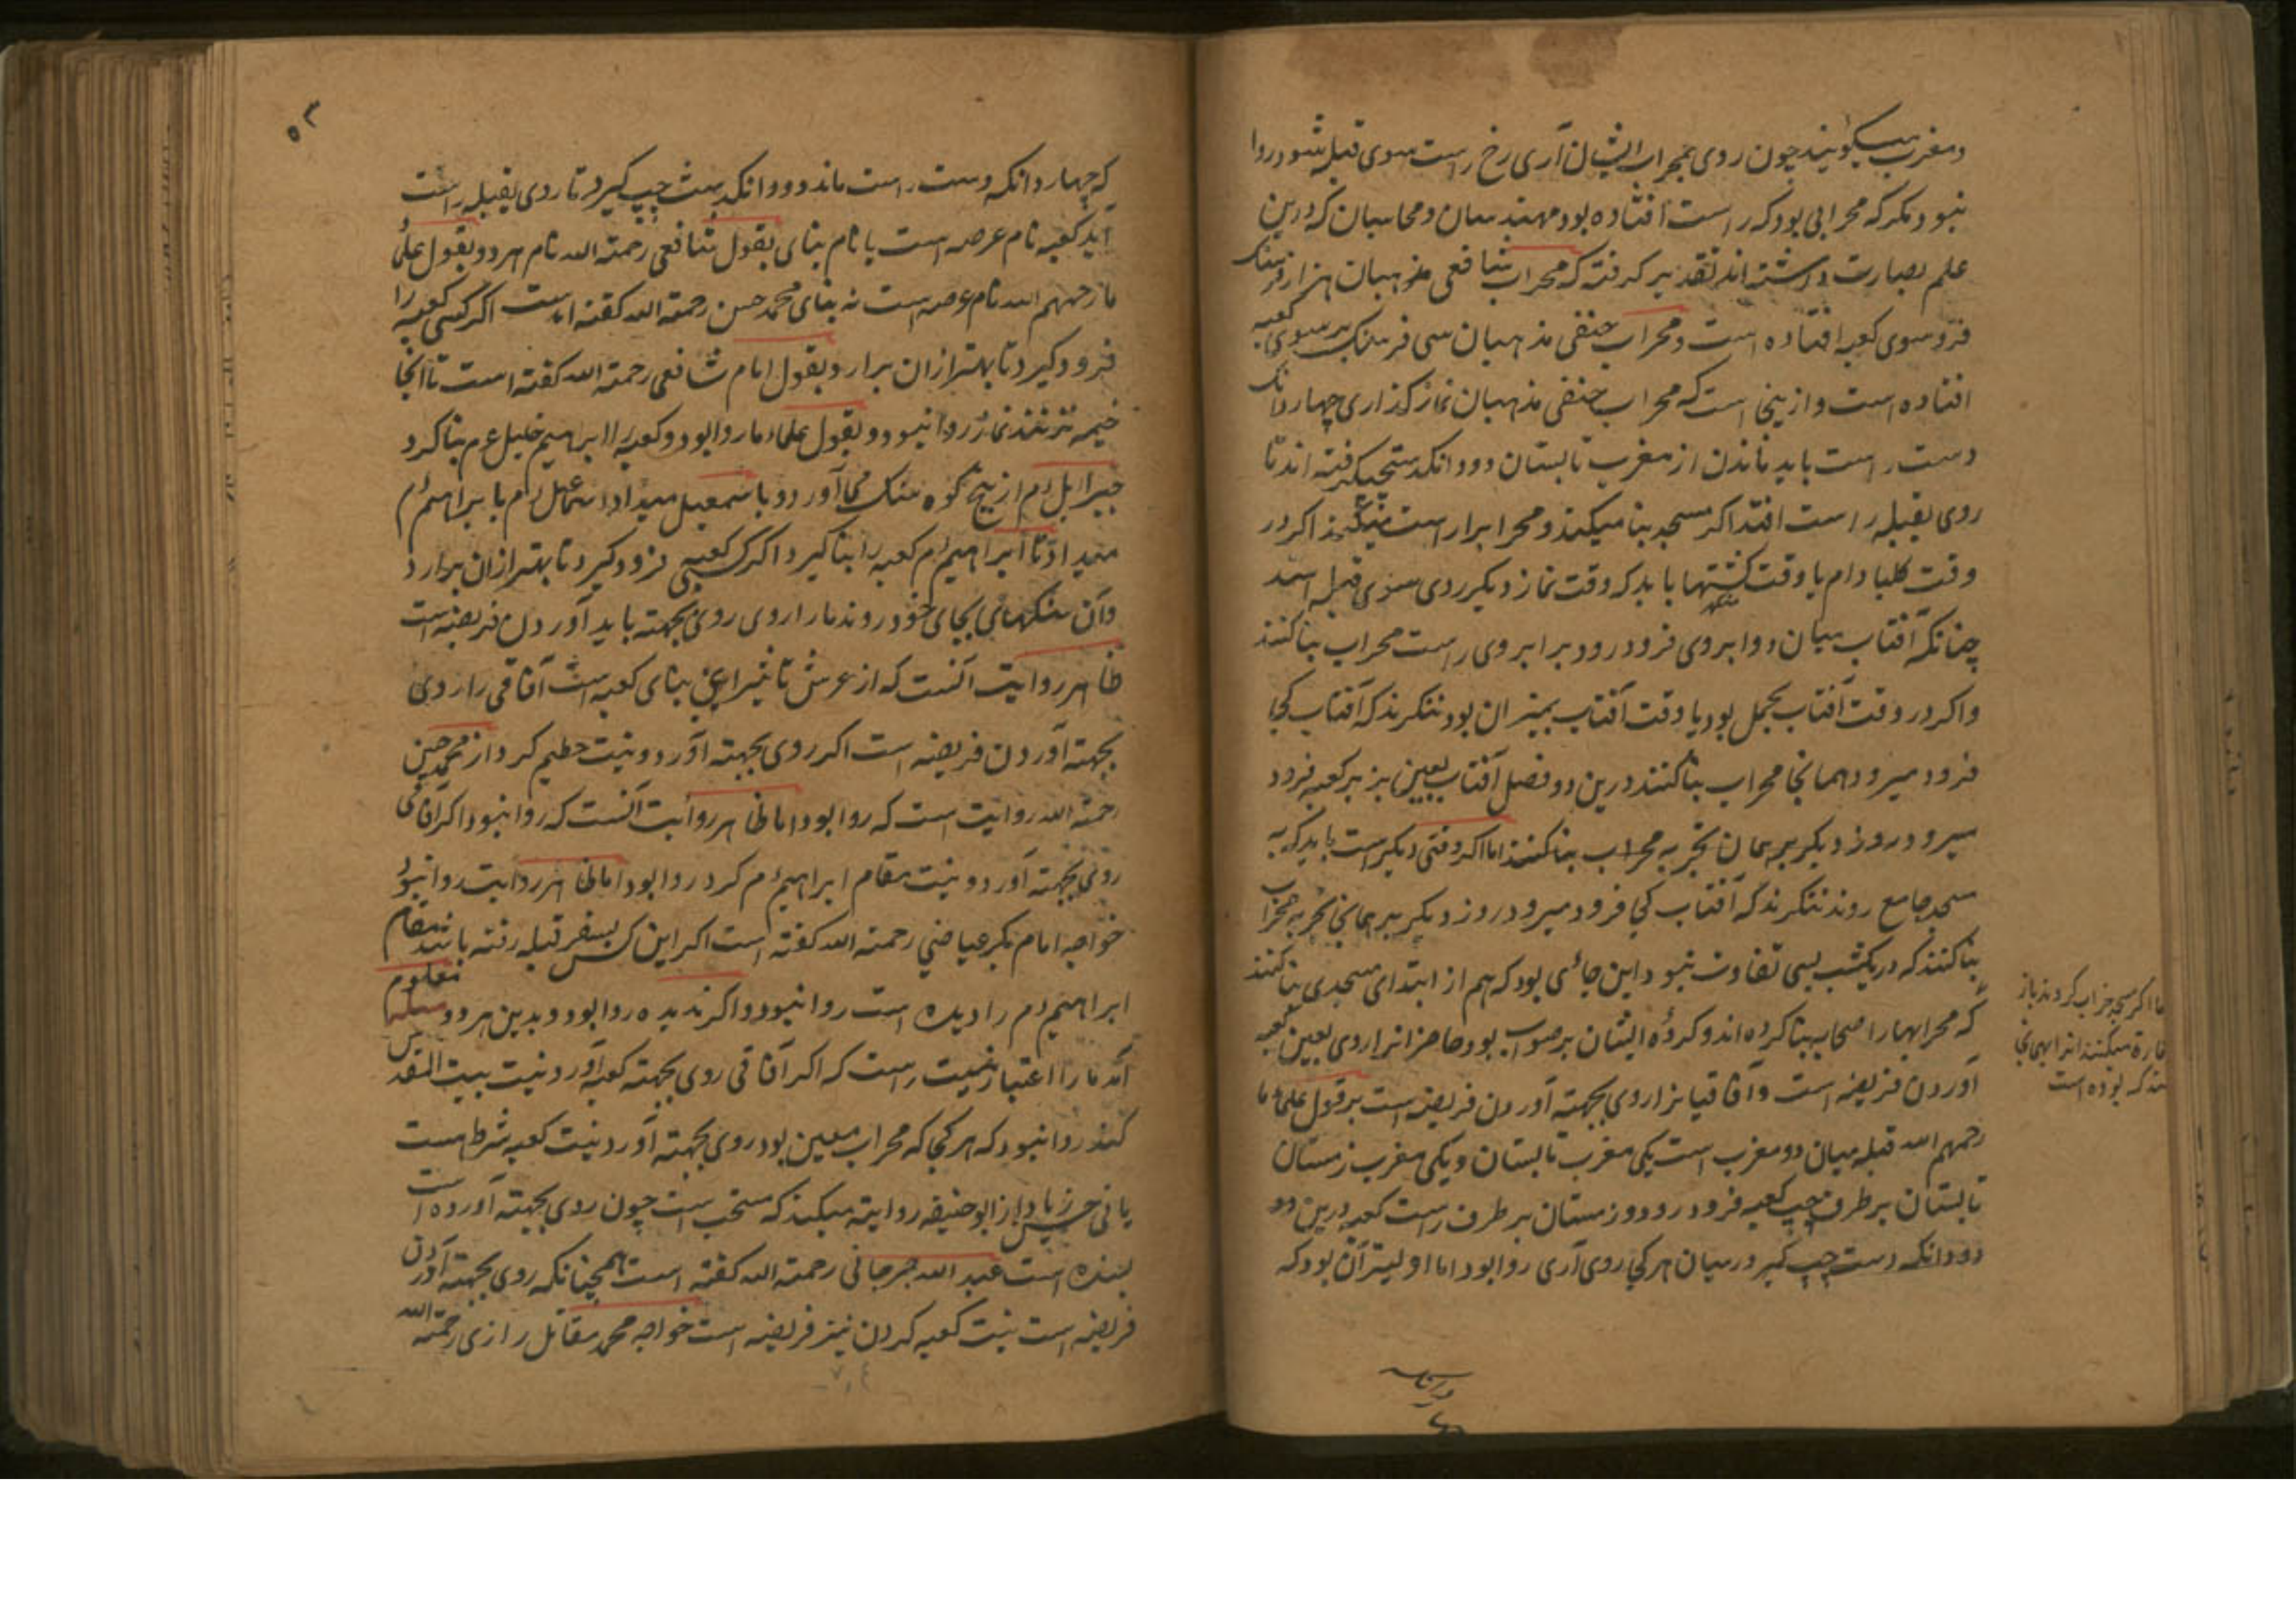 و مغرب میکویند چون روی بمحراب ایشان آری رخ راست سوی قبله شود روا
نبود مکر که محرابی بود که راست افتاده بود مهندسان و محاسبان که درین
علم بصارت داشته اند تقدیر کرفته که محراب شافعی مذهبان هزار فرسنک
فرو سوی کعبه افتاده است و محراب حنفی مذهبان سی فرسنک بر سوی کعبه
افتاده است و ازینجا است که محراب حنفی مذهبان نماز کذاری چهار دانک
دست راست باید ماندن از مغرب تابستان و دو دانک دست چپ کرفته اند تا
روی بقبله راست افتد اکر مسجد بنا میکند و محراب راست میکند اکر در
وقت یا وقت کشتها باید که وقت نماز دیکر روی سوی قبله
چنانکه آفتاب میان دو ابروی فرو رود برابر وی راست محراب بنا کنند
و اکر در وقت آفتاب بحمل بود یا وقت آفتاب بمیزان بود بنکرند که آفتاب کجا
فرود میرود همانجا محراب بنا کنند درین دو فصل آفتاب بعین بر کعبه فرود
میرود روز دیکر بر همان تجربه محراب بنا کنند اما اکر وقتی دیکر است باید که به
مسجد جامع روند بنکرند که آفتاب کجا فرود میرود روز دیکر بر همان تجربه محراب
بنا کنند که در یکشب بسی تفاوت نبود این جائی بود که هم از ابتدای مسجدی بنا کنند
که محرابها را صحابه بنا کرده اند و کرده ایشان بر صواب بود حاضرانرا روی بعین کعبه
آوردن فریضه است و آفاقیانرا روی بجهته آوردن فریضه است بر قول علماء ما
رحمهم الله قبله میان دو مغرب است یکی مغرب تابستان و یکی مغرب زمستان
تابستان بر طرف چپ کعبه فرو رود و زمستان بر طرف راست کعبه درین دو
دو دانکه دست چپ کیر در میان هر کجا روی آری روا بود اما اولیتر آن بود که
اما اکر مسجد خراب کردند باز
میکنند انرا بهمانجا
که بوده است
۵۳
که چهار دانکه دست راست ماند و دو دانک دست چپ کیرد تا روی بقبله راست
آید کعبه نام عرصه است یا نام بنای بقول شافعی رحمته الله نام هر دو و بقول علماء
ما رحمهم الله نام عرصه است نه بنای محمد حسن رحمته الله کفته است اکر کسی کعبه را
فرود کیرد تا بهتر از ان برارد بقول امام شافعی رحمته الله کفته است تا آنجا
خیمه نزنند نماز روا نبود و بقول علماء ما روا بود و کعبه را ابراهیم خلیل ع م بنا کرد
جبرائیل ع م از پنج کوه سنک می آورد و باسمعیل میداد اسماعیل ع م با براهیم ع م
میداد تا ابراهیم ع م کعبه را بنا کیرد اکر کسی کعبه فرود کیرد تا بهتر از ان برارد
و آن سنکهای بجای خود روند ما را روی بجهته باید آوردن فریضه است
ظاهر روایت آنست که از عرش تا ثری بنای کعبه است آفاقی را روی
بجهته آوردن فریضه است اکر روی بجهته آورد و نیت حطیم کرد از محمد حسن
رحمته الله روایت است که روا بود اما ظاهر روایت آنست که روا نبود اکر آفاقی
روی بجهته آورد و نیت مقام ابراهیم ع م کرد روا بود اما ظاهر روایت روا نبود
خواجه امام بکر عیاضی رحمته الله کفته است اکر این کس بسفر قبله رفته باشد مقام
ابراهیم ع م را دیده است روا نبود و اکر ندیده روا بود و بدین هر دو مسئله معلوم
آمد ما را اعتبار نیت راست که اکر آفاقی روی بجهته کعبه آورد نیت بیت المقدس
کند روا نبود که هر کجا که محراب معین بود روی بجهته آورد نیت کعبه شرط هست
یا نی حسن زیاد از ابو حنیفه روایته میکند که مستحب است چون روی بجهته آورده است
بسنده است عبد الله جرجانی رحمته الله کفته است همچنانکه روی بجهته آوردن
فریضه است نیت کعبه کردن نیز فریضه است خواجه محمد مقاتل رازی رحمته الله